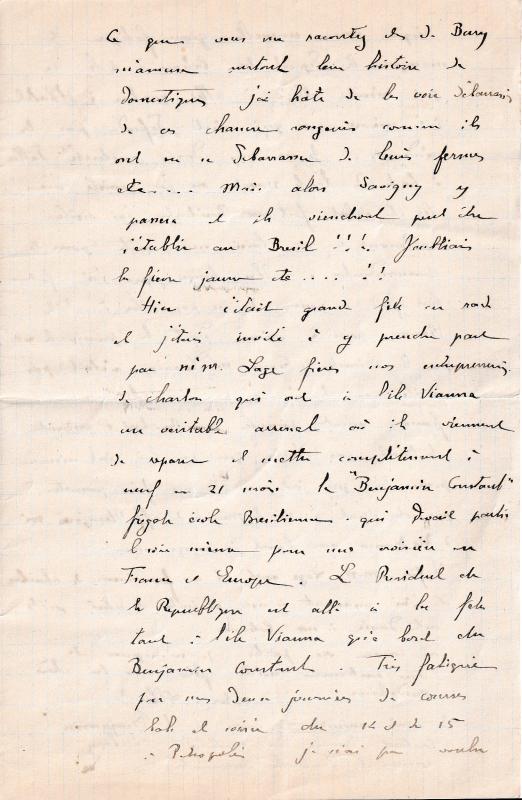 Ce que vous me racontez des de Bary
m'amuse surtout leur histoire de
domestiques j'ai hâte de les voir débarassés
de ces chancre rongeurs comme ils
ont su se débarrasser de leurs fermes
etc.... Mais alors Savigny y
passera et ils viendront peut être
s'établir au Brésil !!! J'oubliais
la fièvre jaune etc .... !!
Hier c'était grande fête en rade
et j'étais invité à y prendre part
par MM. Lage frères nos entrepreneurs
de charbon qui ont à l'île Vianna
un véritable arsenal où ils viennent
de réparer et mettre complètement à
neuf en 21 mois le "Benjamin Constant"
frégate école Brésilienne qui devait partir
le soir même pour une croisière en
France et Europe. Le Président de
la République est allé à la fête
tant à l'île Vianna qu'à bord du
Benjamin Constant. Très fatigué
par mes deux journées de courses
bals et soirée du 14 et de 15
à Petropolis je n'ai pas voulu